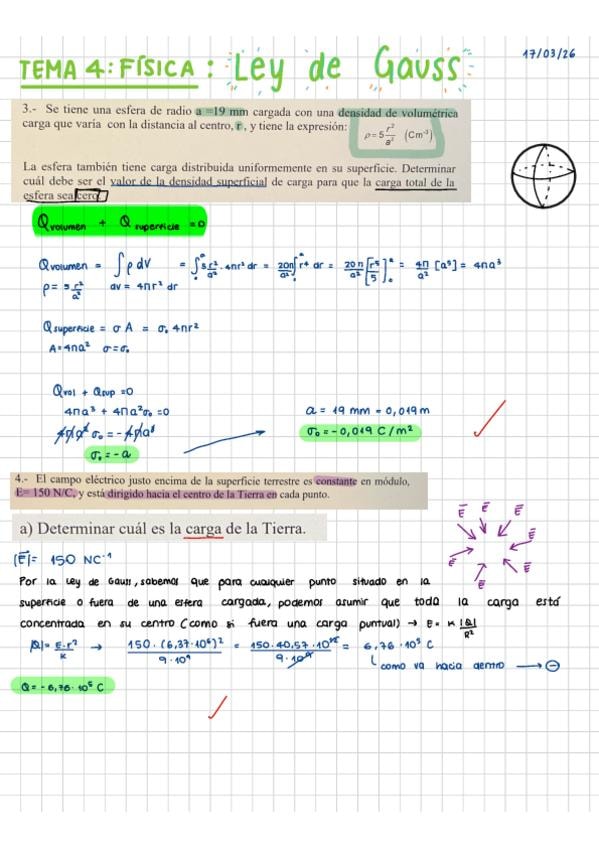 TEMA 4: FÍSICA: Ley de Gauss
17/03/26
3.- Se tiene una esfera de radio a =19 mm cargada con una densidad de volumétrica
carga que varía con la distancia al centro, r, y tiene la expresión: ρ=5 r²/a² (Cm⁻³)
La esfera también tiene carga distribuida uniformemente en su superficie. Determinar
cuál debe ser el valor de la densidad superficial de carga para que la carga total de la
esfera sea cero.
Qvolumen + Qsuperficie =0
Qvolumen = ∫ρ dV = ∫₀ᵃ 5 r²/a² · 4πr² dr = 20π/a² ∫₀ᵃ r⁴ dr = 20π/a² [r⁵/5]₀ᵃ = 4π/a² [a⁵] = 4πa³
ρ = 5 r²/a² dv = 4πr² dr
Qsuperficie = σ A = σ₀ 4πr²
A=4πa² σ=σ₀
Qvol + Qsup =0
4πa³ + 4πa²σ₀ =0
4πa² σ₀ = -4πa³
σ₀ = -a
a = 19 mm = 0,019 m
σ₀ = -0,019 C/m²
4.- El campo eléctrico justo encima de la superficie terrestre es constante en módulo,
E= 150 N/C, y está dirigido hacia el centro de la Tierra en cada punto.
a) Determinar cuál es la carga de la Tierra.
E⃗ E⃗ E⃗ E⃗ E⃗ E⃗ E⃗
|E⃗|= 150 NC⁻¹
Por la Ley de Gauss, sabemos que para cualquier punto situado en la
superficie o fuera de una esfera cargada, podemos asumir que toda la carga está
concentrada en su centro (como si fuera una carga puntual) → E= K |Q|/R²
|Q|= E·r²/K → 150·(6,37·10⁶)²/9·10⁹ = 150·40,57·10¹²/9·10⁹ = 6,76·10⁵ C
como va hacia dentro → ⊖
Q= -6,76·10⁵ C